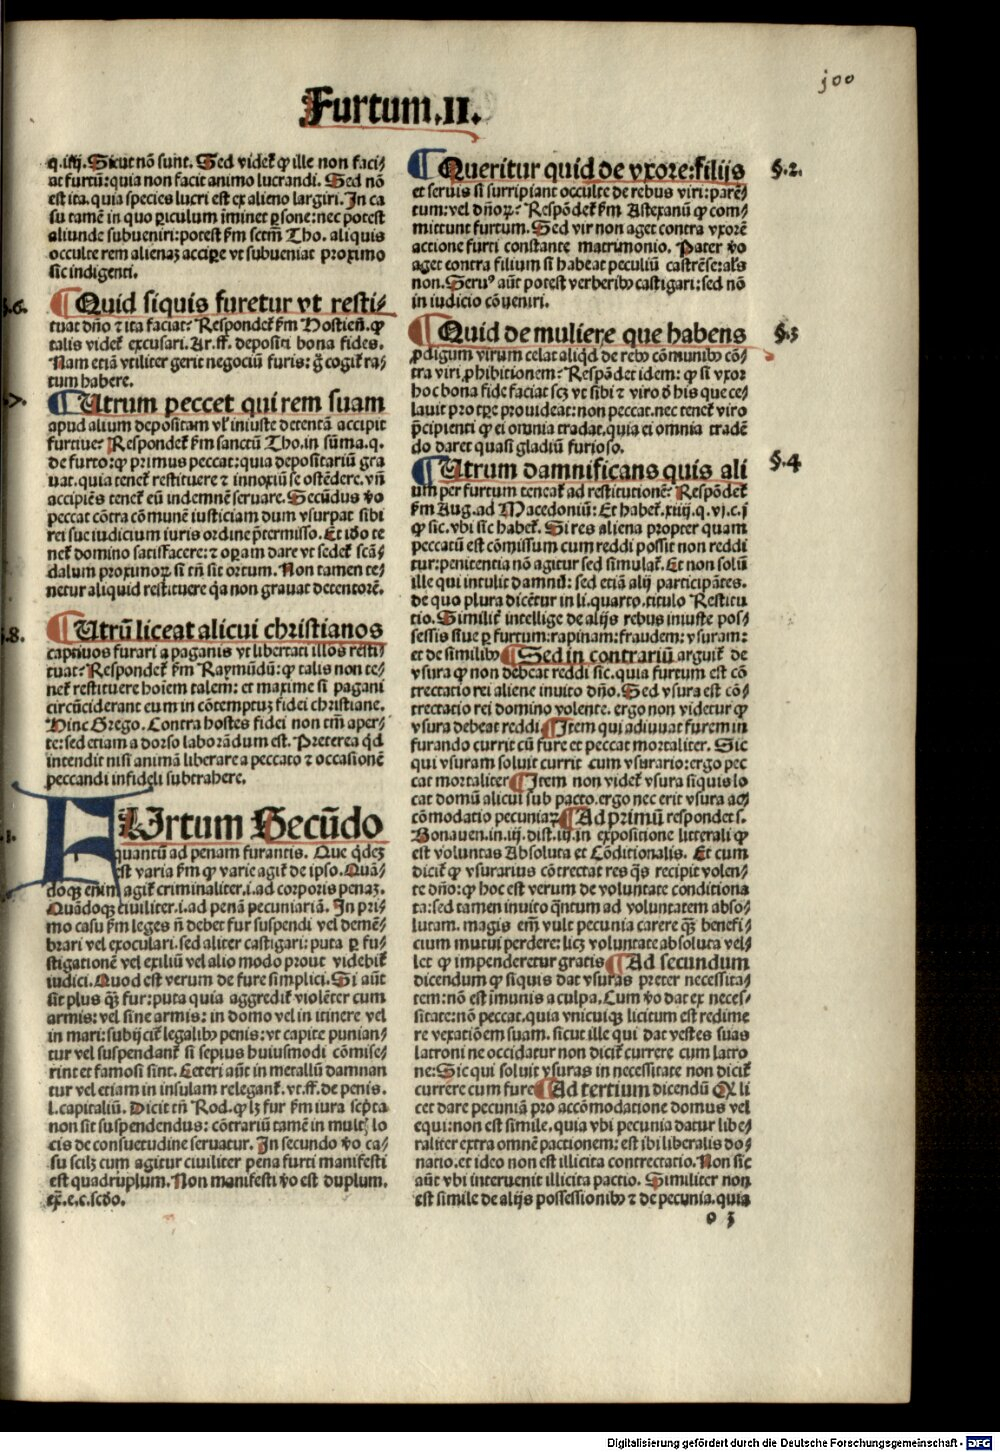 j00
Furtum.II.
q.iiij. Sicut nō sunt. Sed videt̉ ꝙ ille non faci⸗
at furtū: quia non facit animo lucrandi. Sed nō
est ita. quia species lucri est ex alieno largiri. In ca
su tamē in quo ꝑiculum iminet ꝑsone: nec potest
aliunde subueniri: potest ẜm sctm̄ Tho. aliquis
occulte rem alienaꝫ accipe vt subueniat proximo
sic indigenti.
§.6.
¶ Quid siquis furetur vt resti⸗
tuat dn̄o ⁊ ita faciat? Respondet̉ ẜm Hostien̄. ꝙ
talis videt̉ excusari. Ar. ff. depositi bona fides.
Nam etiā vtiliter gerit negociū furis: ḡ cogit̉ ra⸗
tum habere.
¶ Utrum peccet qui rem suam
apud alium depositam vl̓ iniuste detentā accipit
furtiue? Respondet̉ ẜm sanctū Tho. in sūma. q.
de furto: ꝙ primus peccat: quia depositariū gra
uat. quia tenet̉ restituere ⁊ innoxiū se ostēdere. vn̄
accipiēs tenet̉ eū indemnē seruare. Secūdus ꝟo
peccat cōtra cōmunē iusticiam dum vsurpat sibi
rei sue iudicium iuris ordine p̄termisso. Et iō te
net̉ domino satisfacere: ⁊ oꝑam dare vt sedet̉ scā⸗
dalum proximoꝝ si tn̄ sit ortum. Non tamen te⸗
netur aliquid restituere q̇a non grauat detentorē.
§.8.
¶ Utrū liceat alicui christianos
captiuos furari a paganis vt libertati illos resti⸗
tuat? Respondet̉ ẜm Raymūdū: ꝙ talis non te⸗
net̉ restituere hoīem talem: et maxime si pagani
circūciderant eum in cōtemptuꝫ fidei christiane.
Hinc Grego. Contra hostes fidei non tm̄ aper⸗
te: sed etiam a dorso laborādum est. Preterea q̇d
intendit nisi animā liberare a peccato ⁊ occasionē
peccandi infideli subtrahere.
FUrtum Secūdo
quantū ad penam furantis. Que q̇deꝫ
est varia ẜm ꝙ varie agit̉ de ipso. Quā⸗
doqꝫ enim agit̉ criminaliter. i. ad corporis penaꝫ.
Quādoqꝫ ciuiliter. i. ad penā pecuniariā. In pri⸗
mo casu ẜm leges n̄ debet fur suspendi vel demē⸗
brari vel exoculari. sed aliter castigari: puta ꝑ fu⸗
stigationē vel exiliū vel alio modo prout videbit̉
iudici. Quod est verum de fure simplici. Si aūt
sit plus qꝫ̄ fur: puta quia aggredit̉ violēter cum
armis: vel sine armis: in domo vel in itinere vel
in mari: subijcit̉ legalibꝰ penis: vt capite punian⸗
tur vel suspendant̉ si sepius huiusmodi cōmise⸗
rint et famosi sint. Ceteri aūt in metallū damnan
tur vel etiam in insulam relegant̉. vt. ff. de penis.
l. capitaliū. Dicit tn̄ Rod. ꝙ lꝫ fur ẜm iura scp̄ta
non sit suspendendus: cōtrariū tamē in mult̉ lo
cis de consuetudine seruatur. In secundo ꝟo ca⸗
su scilꝫ cum agitur ciuiliter pena furti manifesti
est quadruplum. Non manifesti ꝟo est duplum.
ex̄. e. c. scd̄o.
¶ Queritur quid de vxore: filijs
§.2.
et seruis si surripiant occulte de rebus viri: parē⸗
tum: vel dn̄oꝝ? Respōdet̉ ẜm Astexanū ꝙ com⸗
mittunt furtum. Sed vir non aget contra vxorē
actione furti constante matrimonio. Pater ꝟo
aget contra filium si habeat peculiū castrēse: al̓s
non. Seruꝰ aūt potest verberibꝰ castigari: sed nō
in iudicio cōueniri.
¶ Quid de muliere que habens
§.3
ꝓdigum virum celat aliq̇d de rebꝰ cōmunibꝰ cō⸗
tra viri ꝓhibitionem? Respōdet idem: ꝙ si vxor
hoc bona fide faciat scꝫ vt sibi ⁊ viro ď his que ce⸗
lauit pro tꝑe prouideat: non peccat. nec tenet̉ viro
p̄cipienti ꝙ ei omnia tradat. quia ei omnia tradē
do daret quasi gladiū furioso.
¶ Utrum damnificans quis ali
§.4
um per furtum teneat̉ ad restitutionē? Respōdet̉
ẜm Aug. ad Macedoniū: Et habet̉. xiiij. q. vj. c. j
ꝙ sic. vbi sic habet̉. Si res aliena propter quam
peccatū est cōmissum cum reddi possit non reddi
tur: penitentia nō agitur sed simulat̉. Et non solū
ille qui intulit damnū: sed etiā alij participātes.
de quo plura dicētur in li. quarto. titulo Restitu
tio. Similit̉ intellige de alijs rebus iniuste pos⸗
sessis siue ꝑ furtum: rapinam: fraudem: vsuram:
et de similibꝰ ¶ Sed in contrariū arguit̉ de
vsura ꝙ non debeat reddi sic. quia furtum est cō
trectatio rei aliene inuito dn̄o. Sed vsura est cō⸗
trectatio rei domino volente. ergo non videtur ꝙ
vsura debeat reddi ¶ Item qui adiuuat furem in
furando currit cū fure et peccat mortaliter. Sic
qui vsuram soluit currit cum vsurario: ergo pec
cat mortaliter ¶ Item non videt̉ vsura siquis lo
cat domū alicui sub pacto. ergo nec erit vsura ac̨
cōmodatio pecuniaꝝ ¶ Ad primū respondet s.
Bonauen. in. iij. dist. iij. in expositione litterali ꝙ
est voluntas Absoluta et Cōditionalis. Et cum
dicit̉ ꝙ vsurarius cōtrectat res q̇s recipit volen⸗
te dn̄o: ꝙ hoc est verum de voluntate conditiona
ta: sed tamen inuito q̇ntum ad voluntatem abso⸗
lutam. magis em̄ vult pecunia carere qꝫ̄ benefi⸗
cium mutui perdere: licꝫ voluntate absoluta vel⸗
let ꝙ impenderetur gratis ¶ Ad secundum
dicendum ꝙ siquis dat vsuras preter necessita⸗
tem: nō est īmunis a culpa. Cum ꝟo dat ex neces⸗
sitate: nō peccat. quia vnicuiqꝫ licitum est redime
re vexatiōem suam. sicut ille qui dat vestes suas
latroni ne occidatur non dicit̉ currere cum latro
ne: Sic qui soluit vsuras in necessitate non dicit̉
currere cum fure ¶ Ad tertium dicendū Qꝫ li
cet dare pecuniā pro accōmodatione domus vel
equi: non est simile. quia vbi pecunia datur libe⸗
raliter extra omnē pactionem: est ibi liberalis do⸗
natio. et ideo non est illicita contrectatio. Non sic
aūt vbi interuenit illicita pactio. Similiter non
est simile de alijs possessionibꝰ ⁊ de pecunia. quia
o 3
Digitalisierung gefördert durch die Deutsche Forschungsgemeinschaft - DFG